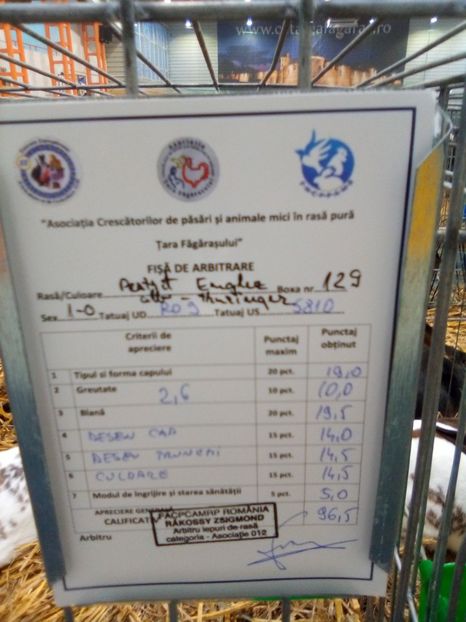 "Asociația Crescătorilor de păsări și animale mici în rasă pură
Țara Făgărașului"
FIȘĂ DE ARBITRARE
Rasă/Culoare Englez Boxa nr 129
Sex 1-0 Tatuaj UD RO 9 Tatuaj US 5810
Criterii de apreciere Punctaj maxim Punctaj obținut
1 Tipul si forma capului 20 pct. 19,0
2 Greutate 2,6 10 pct. 10,0
3 Blană 20 pct. 19,5
4 DESEN CAP 15 pct. 14,0
5 DESEN TRUNCHI 15 pct. 14,5
6 CULOARE 15 pct. 14,5
7 Modul de îngrijire și starea sănătății 5 pct. 5,0
APRECIERE 96,5
CALIFICAT
FACPCAMRP ROMÂNIA
RÁKOSSY ZSIGMOND
Arbitru iepuri de rasă
categoria - Asociație 012
Arbitru